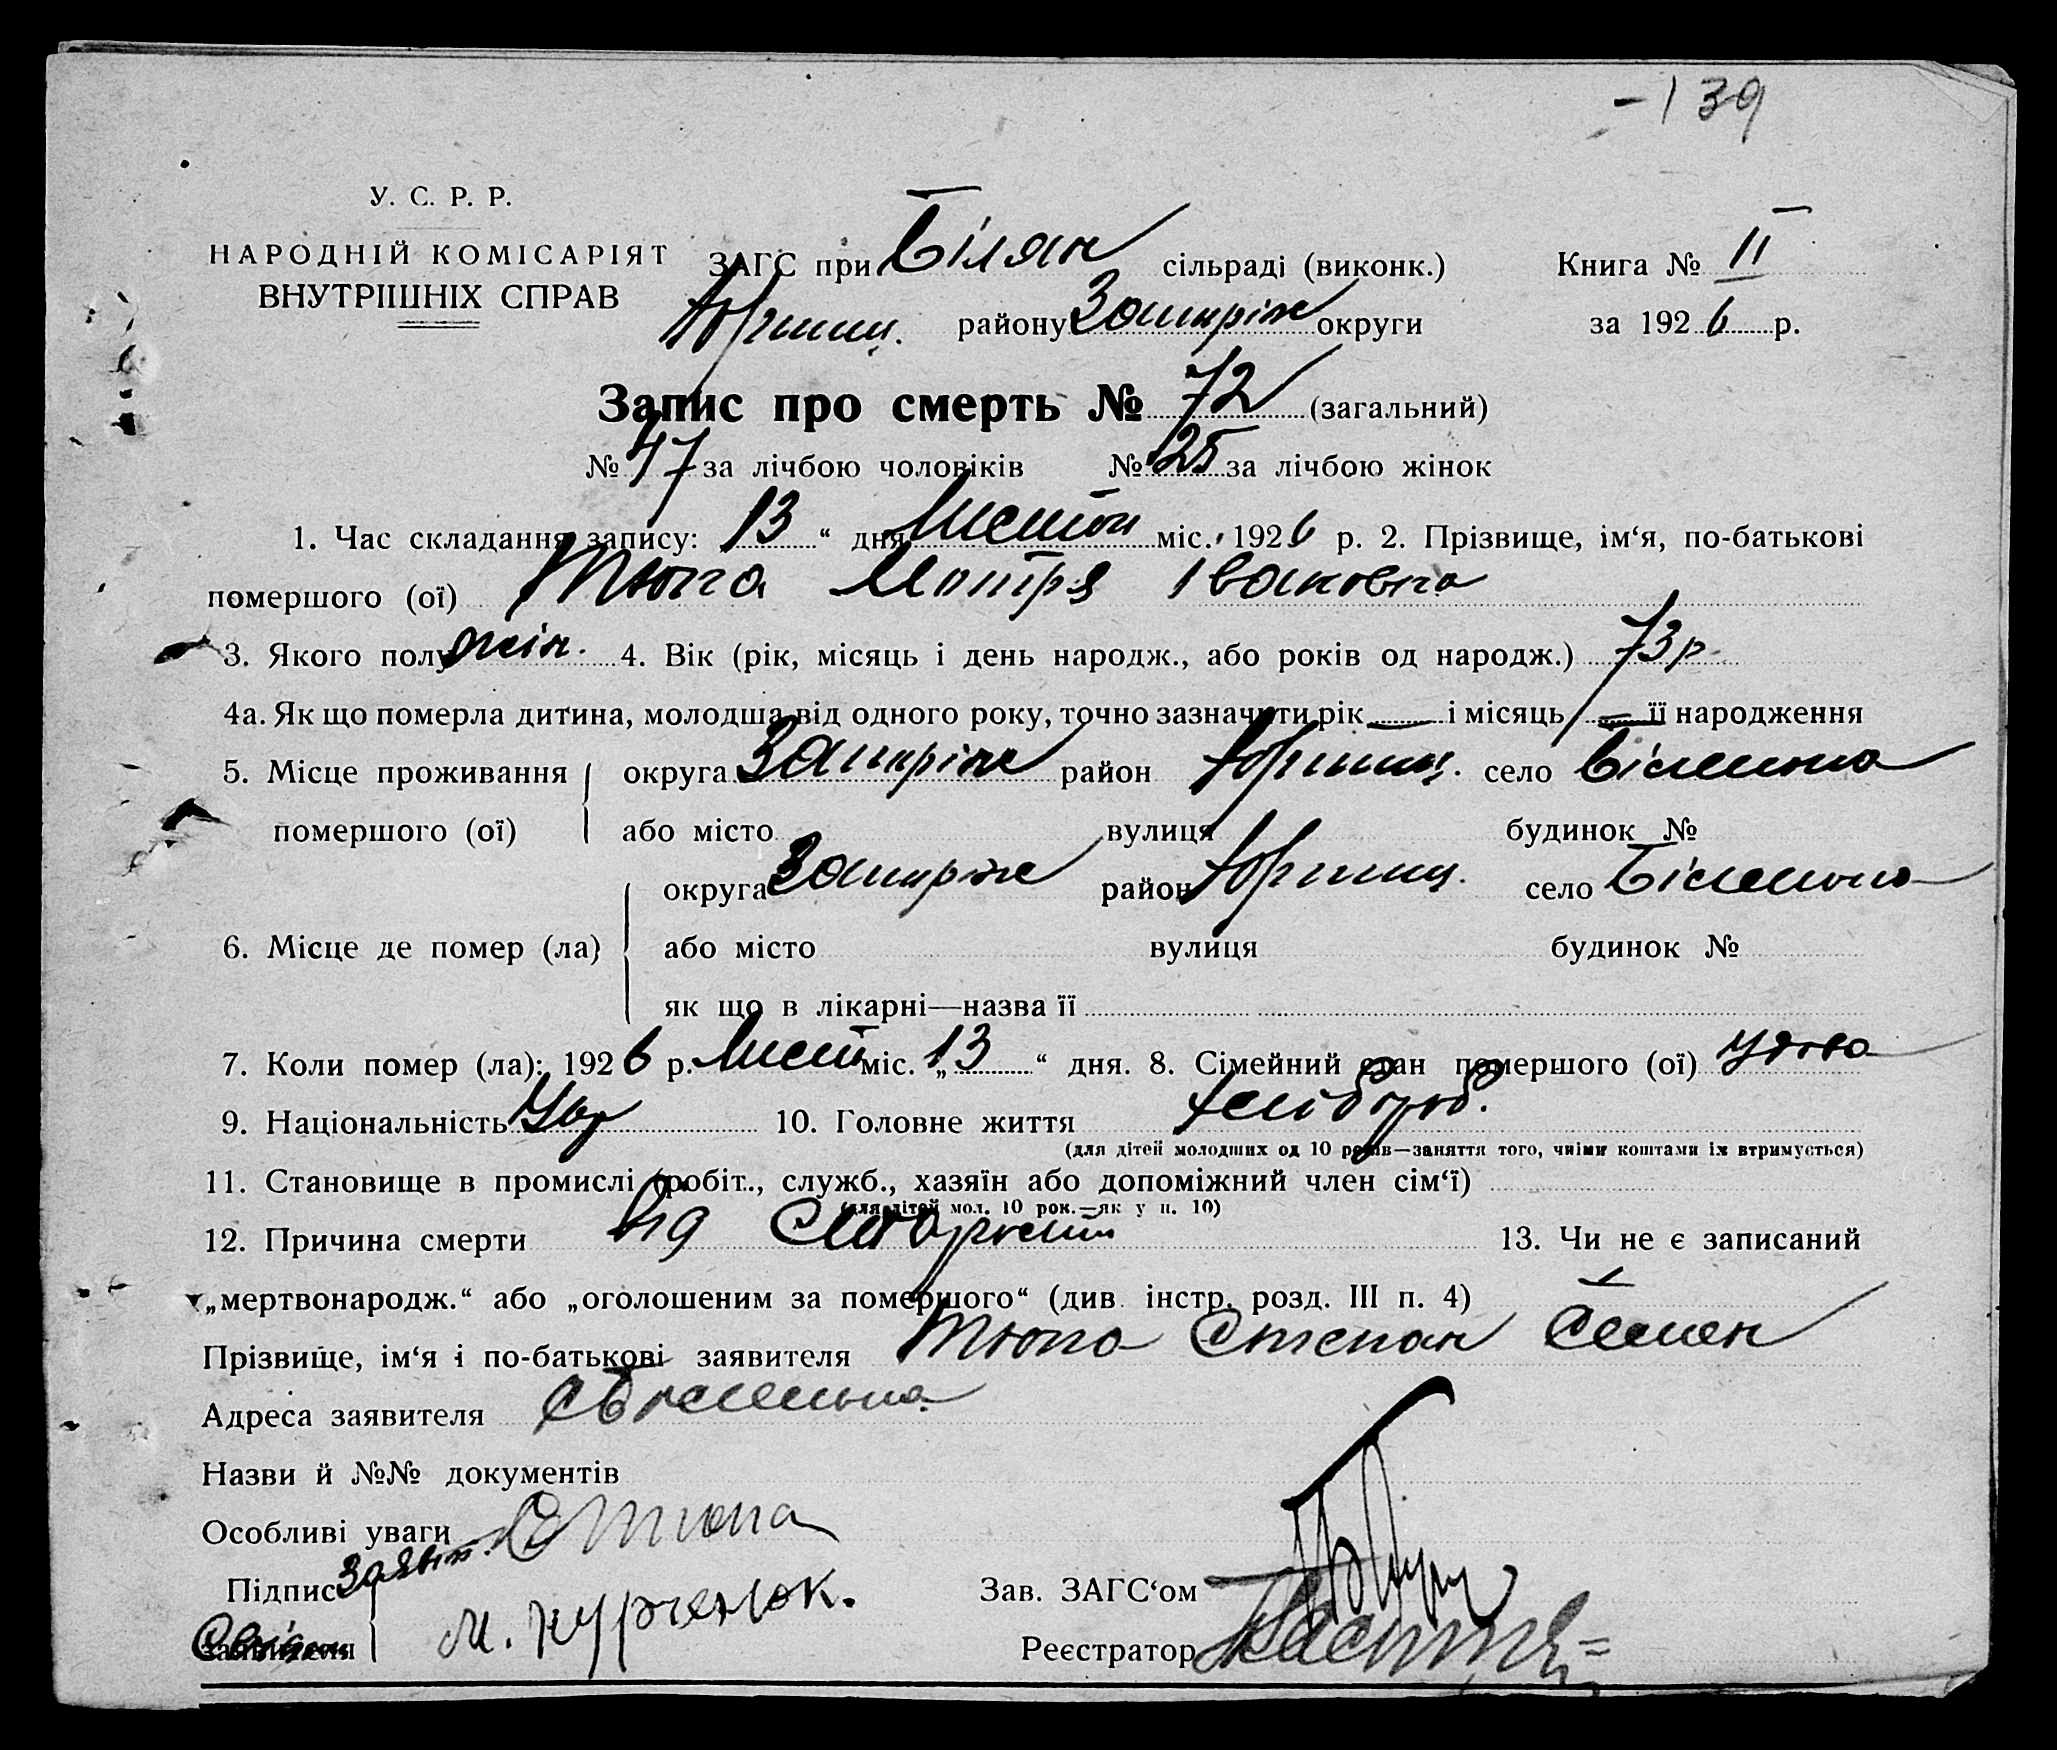 -139
У. С. Р. Р.
НАРОДНІЙ КОМІСАРІЯТ
ВНУТРІШНІХ СПРАВ
ЗАГС при Білян сільраді (виконк.) Книга № II
району Запоріж округи за 1926 р.
Запис про смерть № 72 (загальний)
№ 47 за лічбою чоловіків № 25 за лічбою жінок
1. Час складання запису: 13 “ дня Листоп міс. 1926 р. 2. Прізвище, ім‘я, по-батькові
помершого (ої) Тюпа Мотря Івановна
3. Якого полу жін. 4. Вік (рік, місяць і день народж., або років од народж.) 73 р
4а. Як що померла дитина, молодша від одного року, точно зазначити рік — і місяць — її народження
5. Місце проживання округа Запоріж район село Біленька
помершого (ої) або місто вулиця будинок №
округа Запоріж район село Біленька
6. Місце де помер (ла) або місто вулиця будинок №
як що в лікарні—назва її
7. Коли помер (ла): 1926 р. Лист міс. „ 13 “ дня. 8. Сімейний стан помершого (ої) удова
9. Національність Укр 10. Головне життя хлібороб.
(для дітей молодших од 10 років—заняття того, чиїми коштами їх втримується)
11. Становище в промислі (робіт., служб., хазяїн або допоміжний член сім‘ї)
(для дітей мол. 10 рок.—як у п. 10)
12. Причина смерти Від Старости 13. Чи не є записаний
„мертвонародж.“ або „оголошеним за помершого“ (див. інстр. розд. III п. 4)
Прізвище, ім‘я і по-батькові заявителя Тюпа Степан Семен
Адреса заявителя с Біленька
Назви й №№ документів
Особливі уваги
Підпис заявит. С Тюпа
Зав. ЗАГС‘ом
заявителя М. Курченюк.
Реєстратор